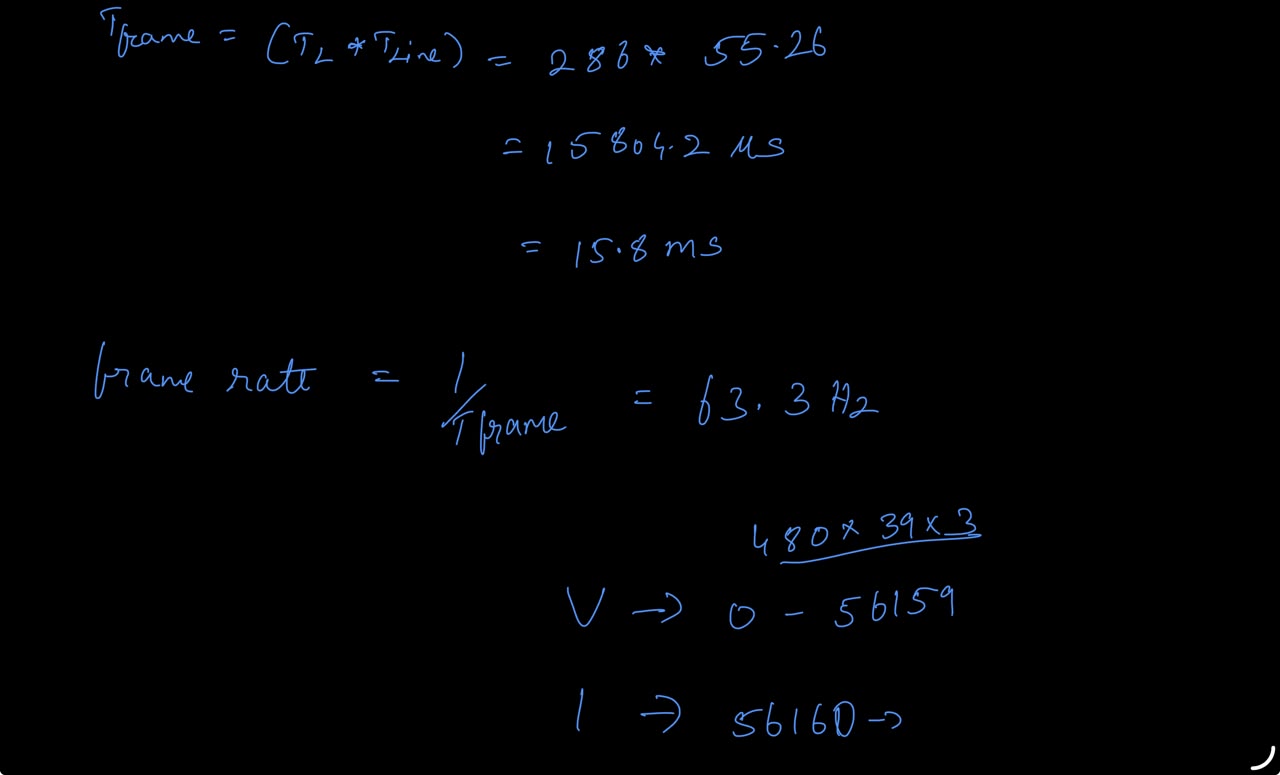 Tframe = (TL * TLine) = 286 * 55.26
= 15804.2 μs
= 15.8 ms
frame rate = 1/Tframe = 63.3 Hz
480 x 39 x 3
V → 0 - 56159
1 → 56160 →